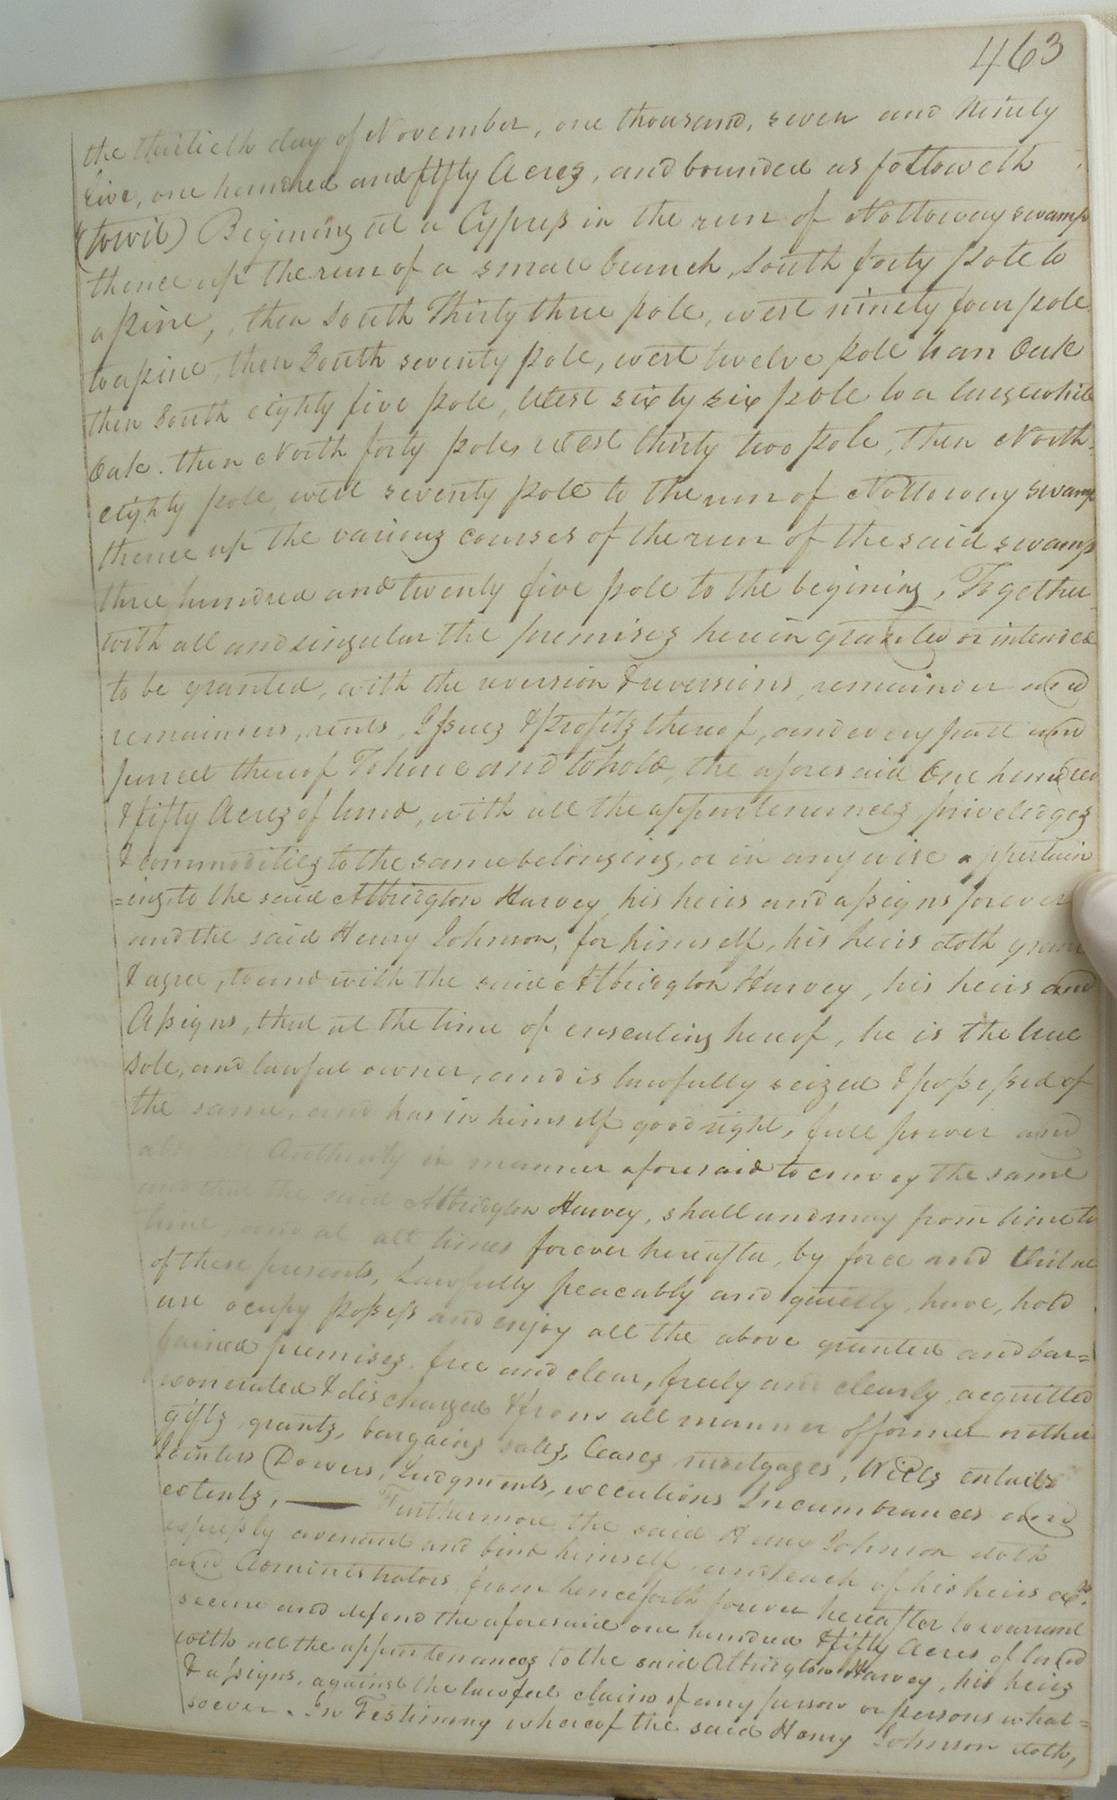 463
the thirtieth day of November, one thousand, seven and Ninety
five, one hundred and fifty Acres, and bounded as followeth
(towit) Begining at a Cypress in the run of Nottoway swamp
thence up the run of a small branch, South forty pole to
a pine, then South Thirty three pole, west ninety four pole
to a pine, then South seventy pole, west twelve pole to an Oak
then South eighty five pole, West sixty six pole to a large white
Oak. then North forty pole, West thirty two pole, then North
eighty pole, west seventy pole to the run of Nottoway swamp
thence up the various courses of the run of the said swamp
three hundred and twenty five pole to the begining, Together
with all and singular the premises herein granted or intended
to be granted, with the reversion & reversions, remainder and
remainers, rents, Issues & profits thereof, and every part and
parcel thereof To have and to hold, the aforesaid One hundred
& fifty Acres of land, with all the appurtenances, priveledges
& commodities to the same belonging, or in any wise appertain
=ing, to the said Atbridgton Harvey, his heirs and assigns forever
and the said Henry Johnson, for himself, his heirs doth grant
& agree, to and with the said Atbridgton Harvey, his heirs and
Assigns, that at the time of ensealing hereof, he is the true
sole, and lawful owner, and is lawfully seized & possessed of
the same, and has in himself good right, full power and
Authority in manner aforesaid to convey the same
and that the said Atbridgton Harvey, shall and may from time to
time, and at all times forever hereafter, by force and virtue
of these presents, Lawfully peacably and quietly, have, hold
use ocupy possess and enjoy all the above granted and bar=
gained premises, free and clear, freely and clearly, acquitted
exonerated & discharged & from all manner of former or other
gifts, grants, bargains, sales, leases, mortgages, Wills entails
Jointers Dowers, Judgments, executions Incumbrances and
extents, — Furthermore the said Henry Johnson doth
expressly covenant and bind himself, and each of his heirs exr.
and Administrators, from henceforth forever hereafter to warrant
secure and defend the aforesaid one hundred & fifty Acres of land
with all the appurtenances to the said Atbridgton Harvey, his heirs
& assigns, against the lawful claims of any person or persons what=
soever. In Testimony whereof the said Henry Johnson doth,